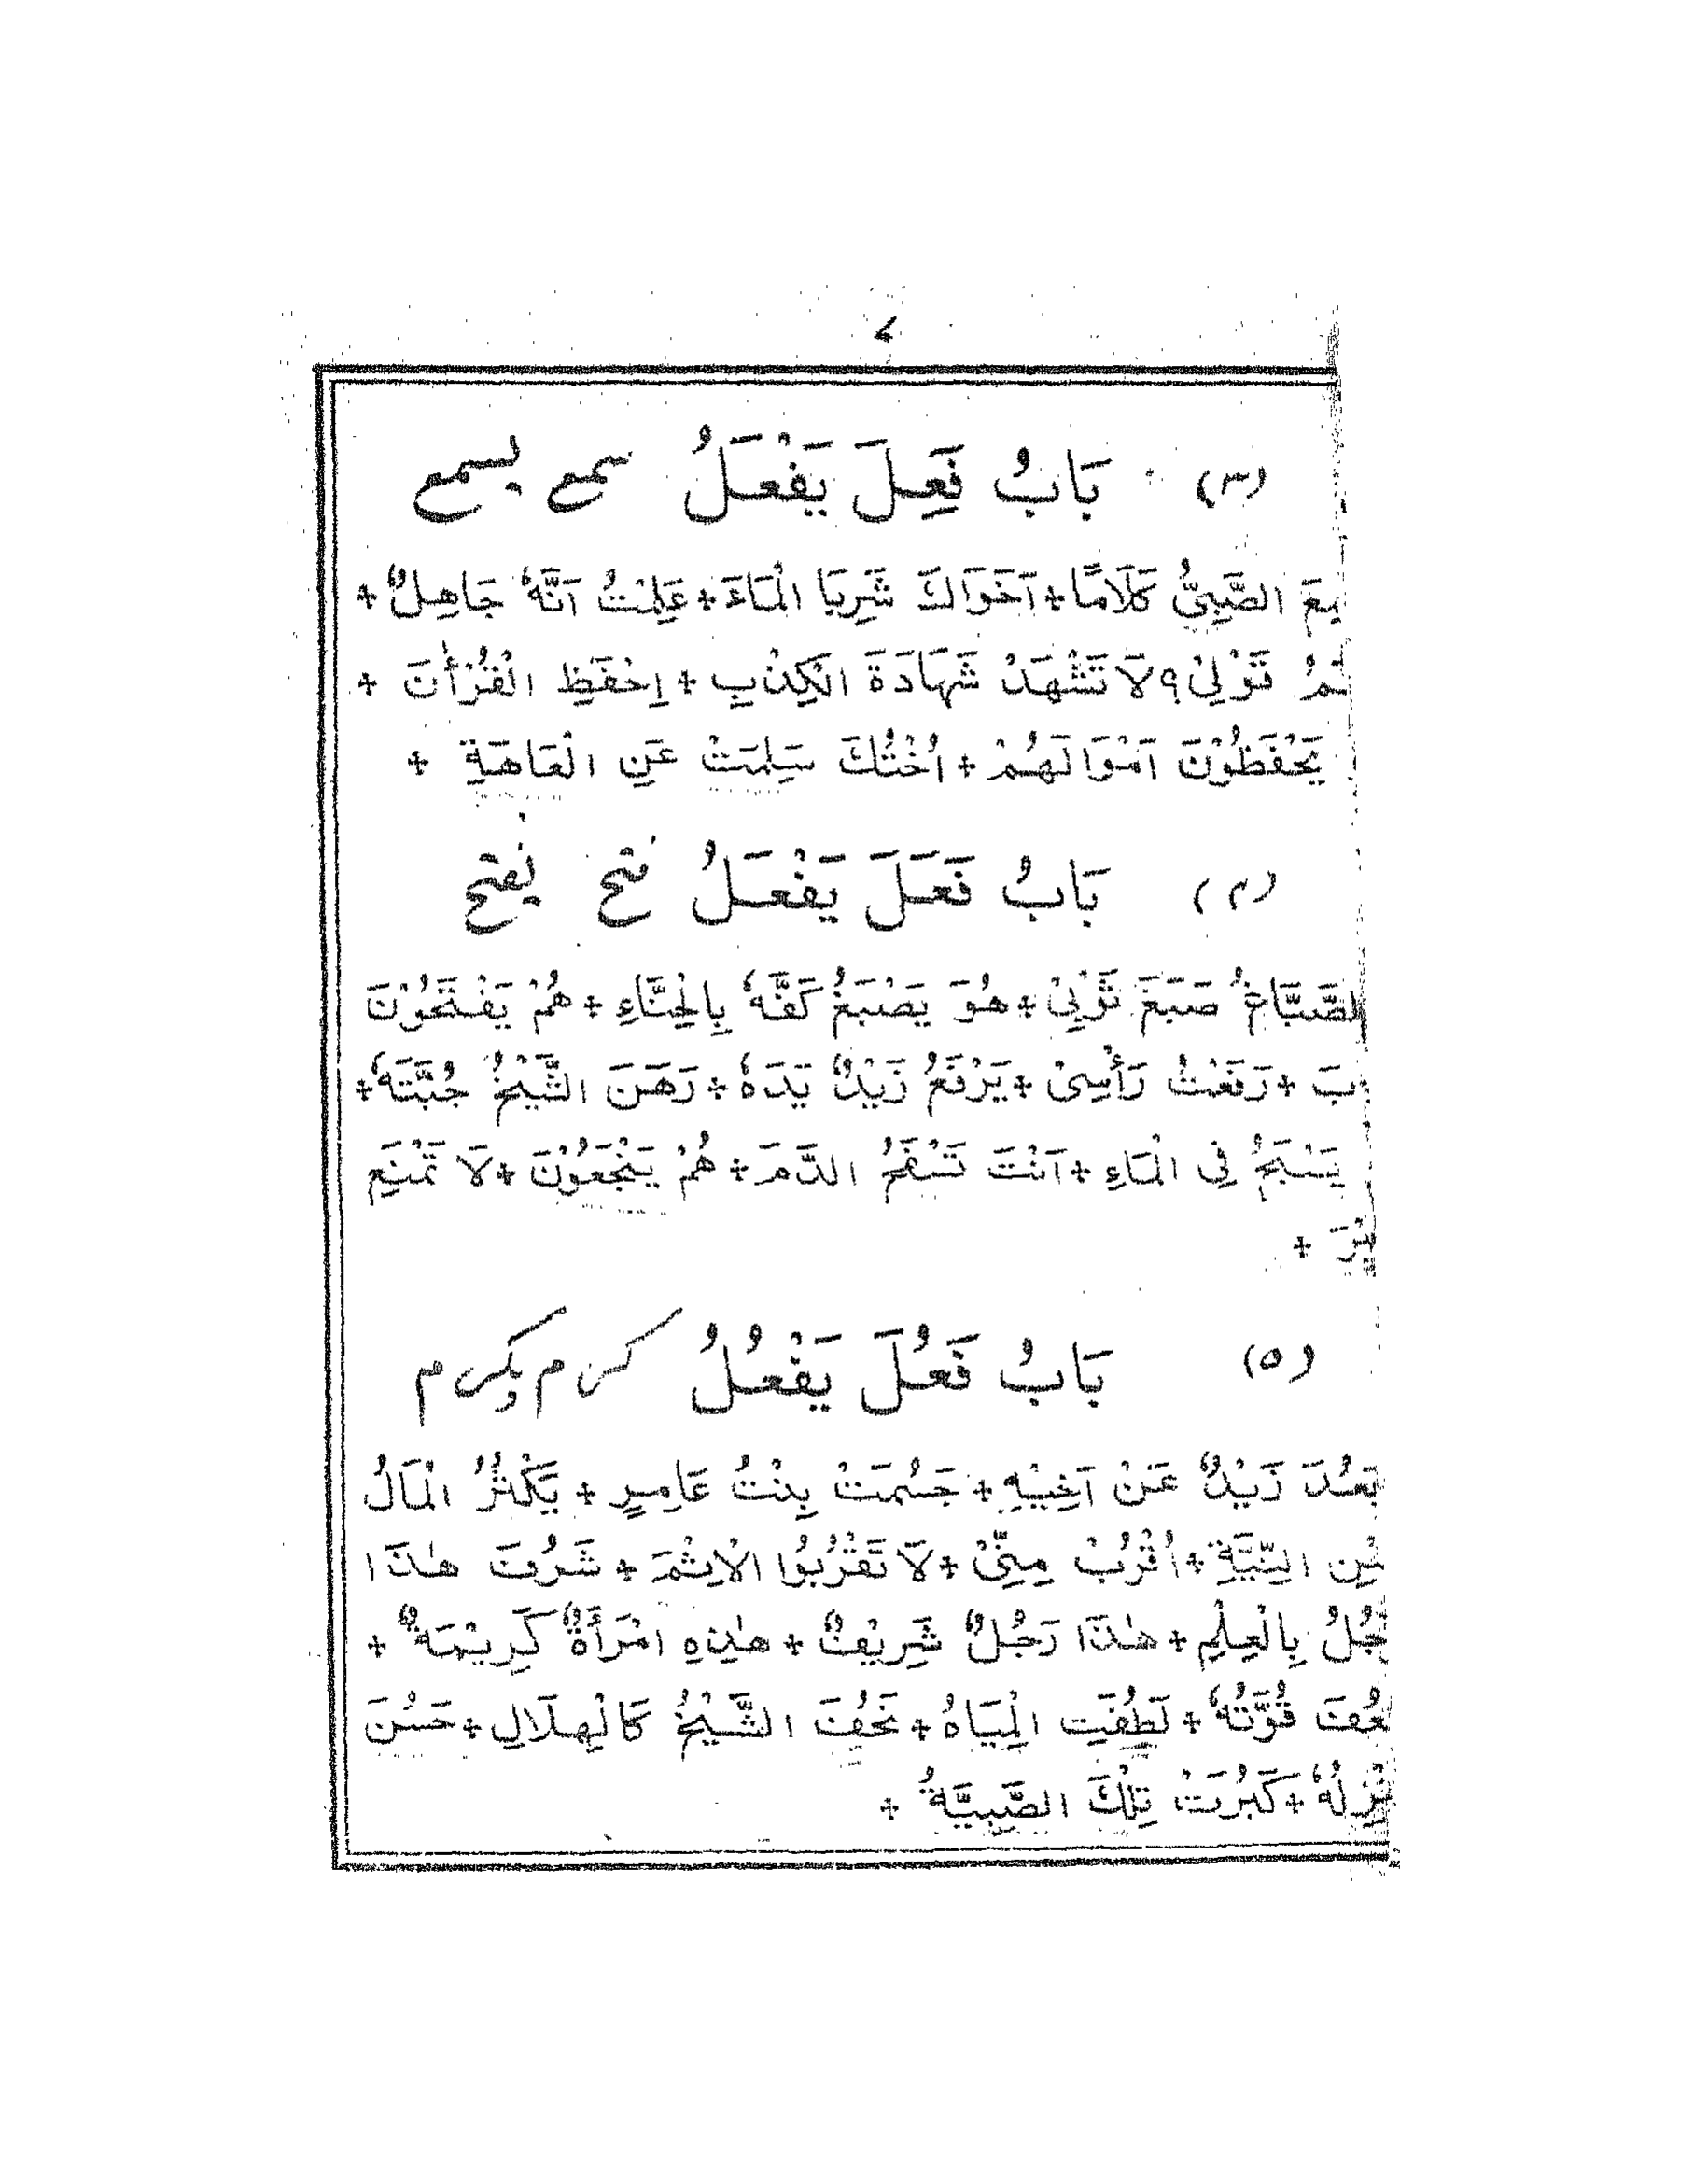 ۷
(۳) بَابُ فَعِلَ يَفْعَلُ سمع يسمع
الصَّبِيُّ كَلَامًا + اَخَوَاكَ شَرِبَا الْمَاءَ + عَلِمْتُ اَنَّهٗ جَاهِلٌ +
قَوْلِيْ؟ لَا تَشْهَدْ شَهَادَةَ الْكِذْبِ + اِحْفَظِ الْقُرْأٰنَ +
يَحْفَظُوْنَ اَمْوَالَهُمْ + اُخْتُكَ سَلِمَتْ عَنِ الْعَاهَةِ +
(۴) بَابُ فَعَلَ يَفْعَلُ فتح يفتح
الصَّبَّاغُ صَبَغَ ثَوْبِيْ + هُوَ يَصْبَغُ كَفَّهٗ بِالْحِنَّاءِ + هُمْ يَفْتَحُوْنَ
+ رَفَعْتُ رَأْسِىْ + يَرْفَعُ زَيْدٌ يَدَهٗ + رَهَنَ الشَّيْخُ جُبَّتَهٗ +
يَسْبَحُ فِى الْمَاءِ + اَنْتَ تَسْفَحُ الدَّمَ + هُمْ يَنْجَعُوْنَ + لَا تَمْنَعِ
+
(۵) بَابُ فَعُلَ يَفْعُلُ كرم يكرم
بَعُدَ زَيْدٌ عَنْ اَخِيْهِ + جَسُمَتْ بِنْتُ عَامِرٍ + يَكْثُرُ الْمَالُ
النِّيَّةِ + اُقْرُبْ مِنِّىْ + لَا تَقْرُبُوا الْاِثْمَ + شَرُفَ هٰذَا
بِالْعِلْمِ + هٰذَا رَجُلٌ شَرِيْفٌ + هٰذِهِ امْرَأَةٌ كَرِيْمَةٌ +
قُوَّتُهٗ + لَطُفَتِ الْمِيَاهُ + نَحُفَ الشَّيْخُ كَالْهِلَالِ + حَسُنَ
+ كَبُرَتْ تِلْكَ الصَّبِيَّةُ +